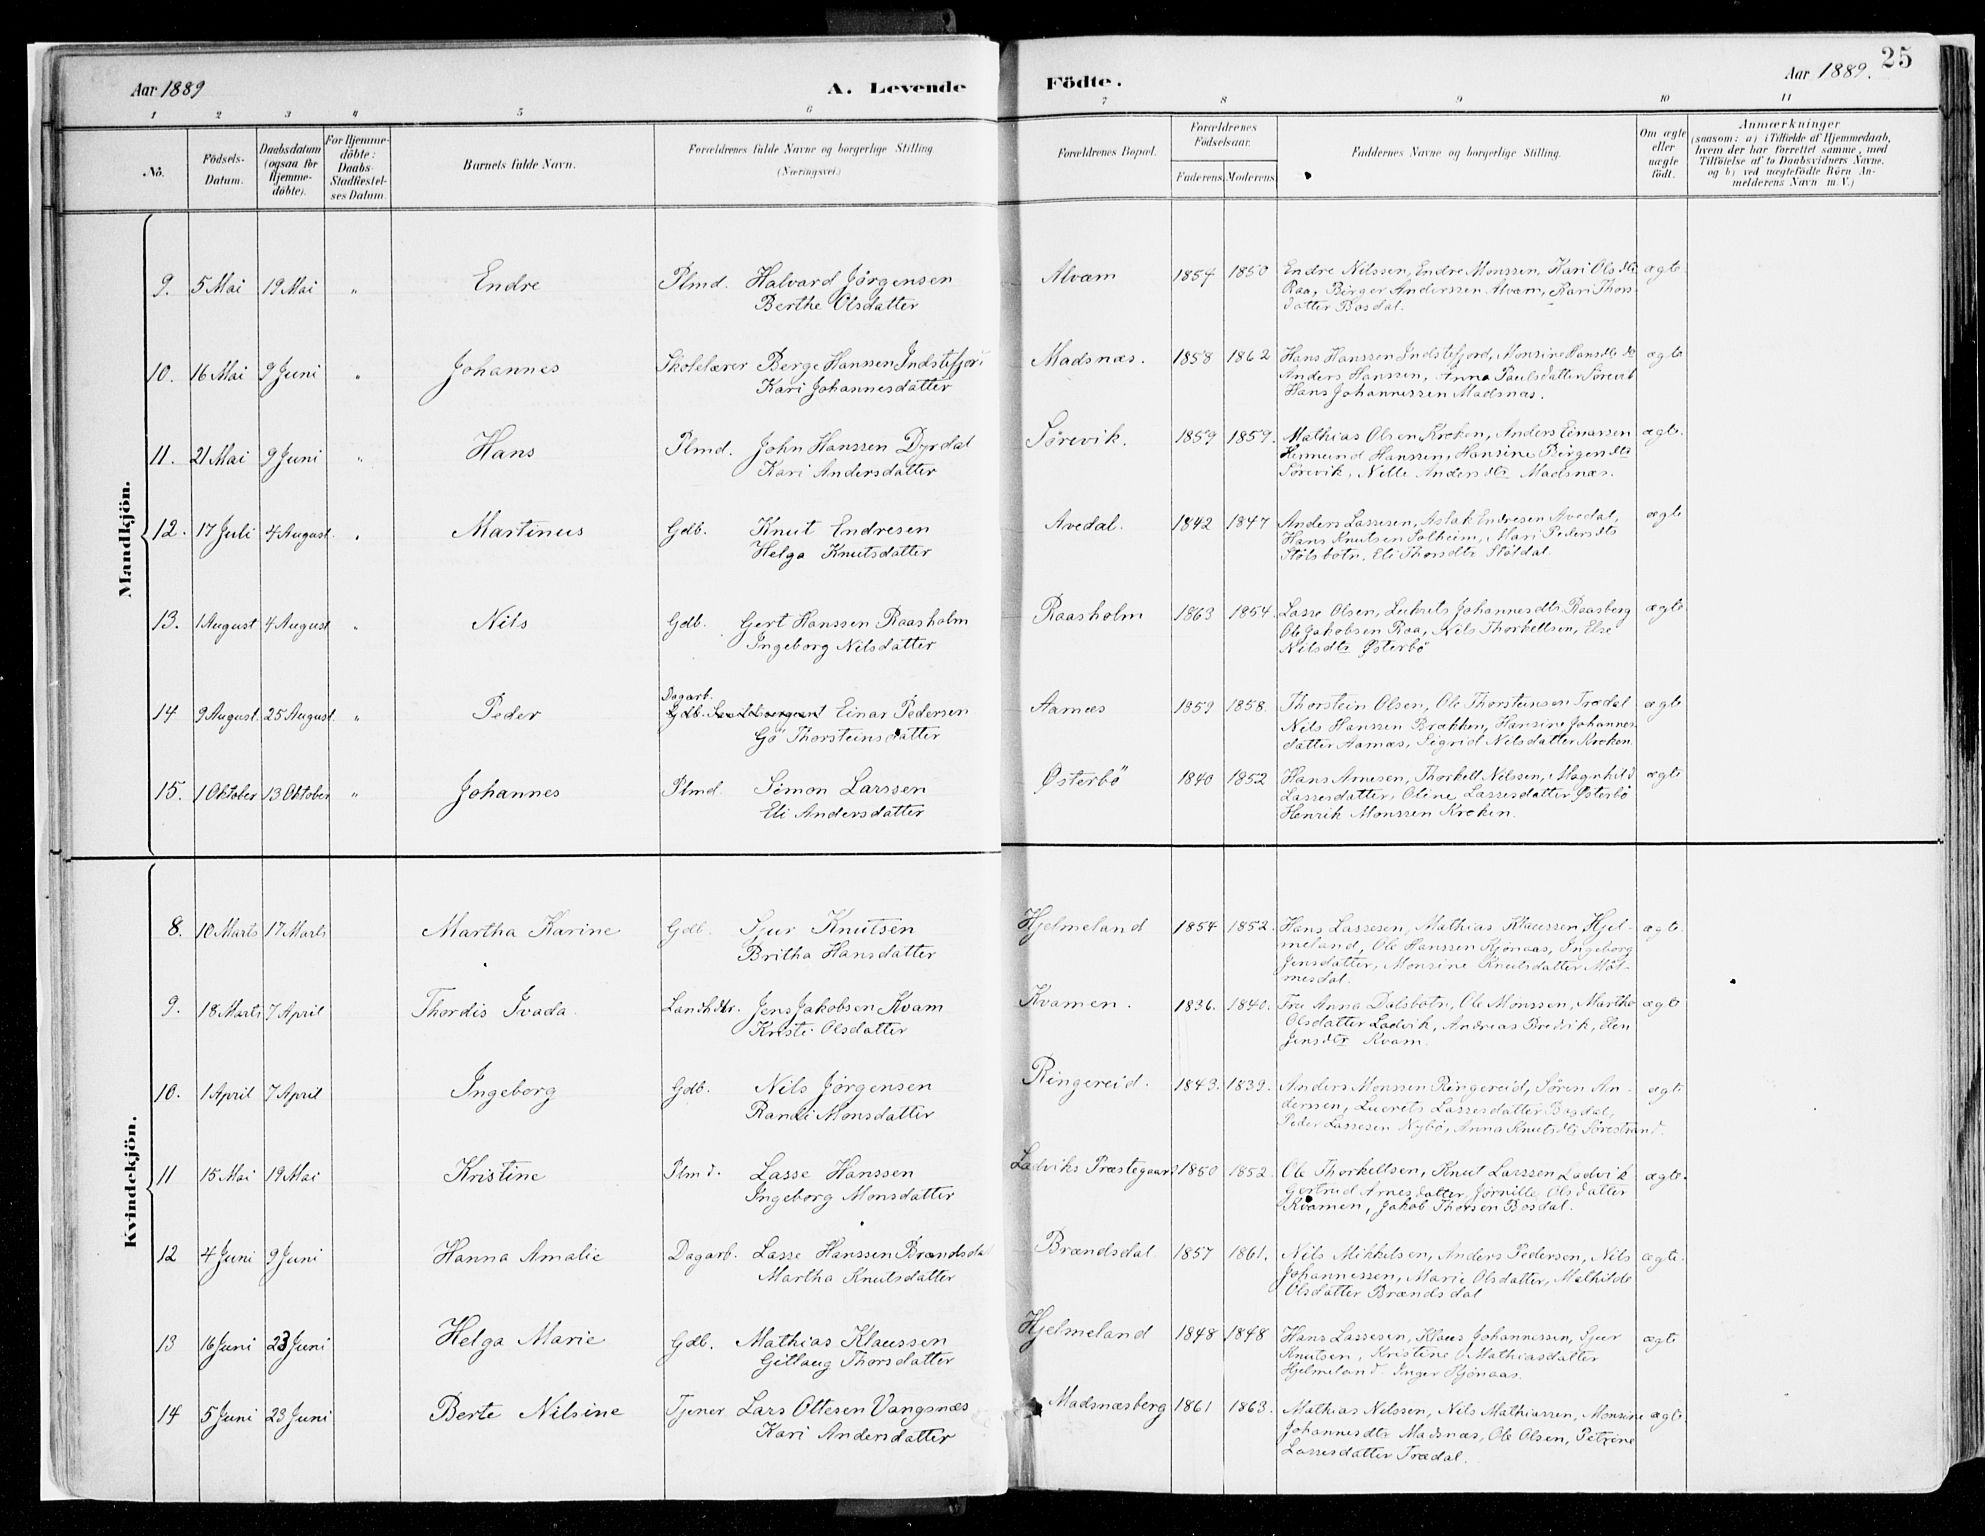 25
Aar 1889
A. Levende
Födte.
Aar 1889.
1 2 3 4 5 6 7 8 9 10 11
No.
Födsels-
Datum.
Daabsdatum
(ogsaa for
Hjemme-
döbte).
For Hjemme-
döbte:
Daabs-
Stadfæstel-
ses Datum.
Barnets fulde Navn.
Forældrenes fulde Navne og borgerlige Stilling
(Næringsvei.)
Forældrenes Bopæl.
Forældrenes
Födselsaar.
Faderens Moderens
Faddernes Navne og borgerlige Stilling.
Om ægte
eller
uægte
födt.
Anmærkninger
(saasom: a) i Tilfælde af Hjemmedaab,
hvem der har forrettet samme, med
Tilföielse af to Daabsvidners Navne.
og b) ved uægtefödte Börn An-
melderens Navn m. V.)
Mandkjön.
9. 5 Mai 19 Mai " Endre Plmd. Halvard Jørgensen
Berthe Olsdatter
Alvæm 1854 1850 Endre Nilssen, Endre Monssen, Kari Olsdtr ægte
Raa, Birger Anderssen Alvæm, Kari Thors-
datter Bosdal.
10. 16 Mai 9 Juni " Johannes Skolelærer Berge Hanssen Indstefjord
Kari Johannesdatter
Madsnæs. 1858 1862 Hans Hanssen Indstefjord, Monsine Hansdtr do ægte
Anders Hanssen, Anna Paulsdatter Sørevik
Hans Johannessen Madsnæs.
11. 21 Mai 9 Juni " Hans Plmd. John Hanssen Dyrdal
Kari Andersdatter
Sørevik. 1859 1859. Mathias Olsen Kroken, Anders Einarsen ægte.
Hermund Hanssen, Hansine Birgersdtr
Sørevik, Nille Andersdtr Madsnæs.
12. 17 Juli 4 August " Martinus Gdb. Knut Endresen
Helga Knutsdatter
Avedal. 1842 1847 Anders Lassesen, Aslak Endresen Avedal, ægte
Hans Knutsen Solheim, Mari Pedersdtr
Stølsbotn, Eli Thorsdtr Støldal.
13. 1 August 4 August " Nils Gdb. Gert Hanssen Raasholm
Ingeborg Nilsdatter
Raasholm 1863 1854. Lasse Olsen, Lukrets Johannesdtr Raasberg ægte
Ole Jakobsen Raa, Nils Thorkeltsen, Else
Nilsdtr Østerbö
14 9 August 25 August " Peder Dagarb.
Gdb. Einar Pedersen
Gö Thorsteinsdatter
Aarnæs 1859 1858. Thorstein Olsen, Ole Thorsteinsen Trædal ægte
Nils Hanssen Brækken, Hansine Johannes-
datter Aarnæs, Sigrid Nilsdatter Kroken
15. 1 Oktober 13 Oktober " Johannes Plmd Simon Larssen
Eli Andersdatter
Østerbö 1840 1852 Hans Arnesen, Thorkelt Nilssen, Magnhild ægte
Lassesdatter, Oline Lassesdatter Østerbö
Henrik Monssen Kroken.
Kvindekjön.
8. 10 Marts 17 Marts Martha Karine Gdb. Sjur Knutsen
Britha Hansdatter
Hjelmeland 1854 1852. Hans Lassesen, Mathias Klaussen Hjel- ægte.
meland, Ole Hanssen Kjönaas, Ingeborg
Jensdatter, Monsine Knutsdatter Mat-
nesdal.
9. 18 Marts 7 April Thordis Ivada. Landhdlr. Jens Jakobsen Kvam
Kristi Olsdatter
Kvamen. 1836. 1840. Fru Anna Dalsbotn, Ole Monssen, Martha ægte
Olsdatter Ladvik, Andreas Bredvik, Elen
Jensdtr Kvam.
10. 1 April 7 April Ingeborg Gdb. Nils Jørgensen
Randi Monsdatter
Ringereid. 1843. 1839. Anders Monssen Ringereid, Søren An- ægte
derssen, Lucrets Lassesdatter Bosdal,
Peder Lassesen Nybö, Anna Knutsdtr Sørestrand.
11 15 Mai 19 Mai Kristine Plmd. Lasse Hanssen
Ingeborg Monsdatter
Ladviks Præstegaard 1850 1852. Ole Thorkeltsen, Knut Larssen Ladvik ægte.
Gertrud Arnesdatter, Jørnille Olsdatter
Kvamen, Jakob Thorsen Bosdal.
12 4 Juni 9 Juni Hanna Amalie Dagarb. Lasse Hanssen Brændsdal
Martha Knutsdatter
Brændsdal 1857 1861. Nils Mikkelsen, Anders Pedersen, Nils ægte.
Johannessen, Marie Olsdatter, Mathilde
Olsdatter Brændsdal
13 16 Juni 23 Juni Helga Marie Gdb. Mathias Klaussen
Gitlaug Thorsdatter
Hjelmeland 1848 1848 Hans Lassesen, Klaus Johannessen, Sjur ægte
Knutsen, Kristine Mathiasdatter
Hjelmeland. Inger Kjönaas.
14 5 Juni 23 Juni Berte Nilsine Tjener Lars Ottesen Vangsnæs
Kari Andersdatter
Madsnæsberg 1861 1863. Mathias Nilssen, Nils Mathiassen, Monsine ægte.
Johannesdtr Madsnæs, Ole Olsen, Petrine
Lassesdatter Trædal.